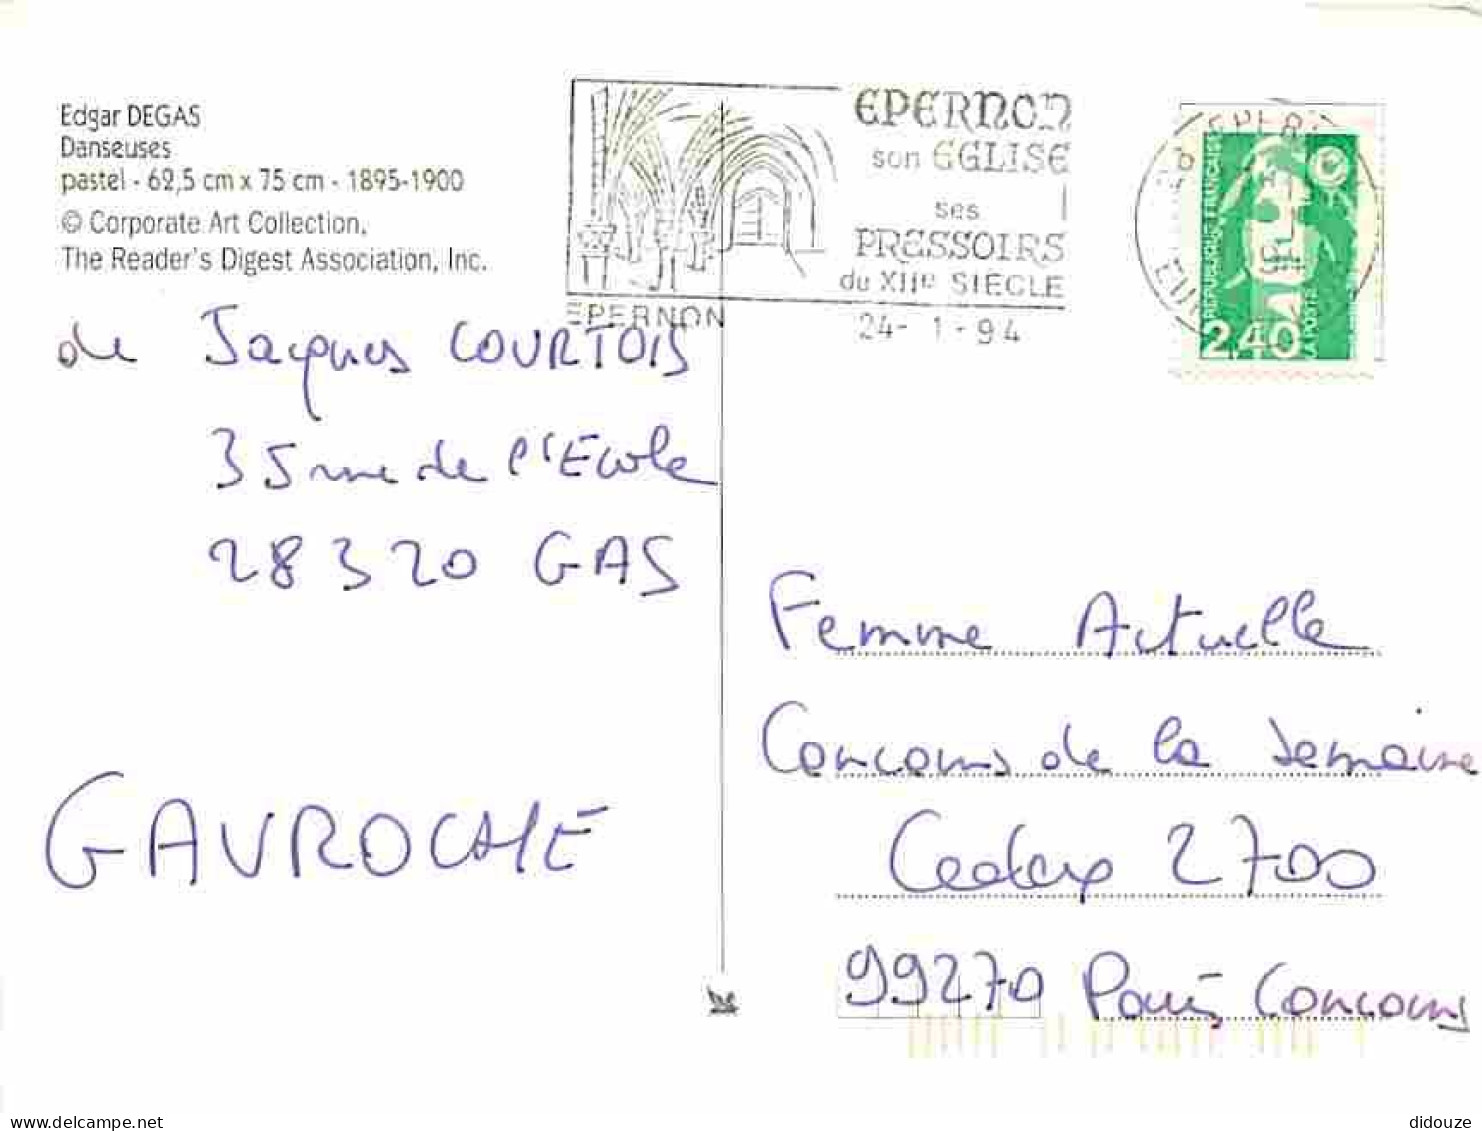 Edgar DEGAS
Danseuses
pastel - 62,5 cm x 75 cm - 1895-1900
© Corporate Art Collection,
The Reader's Digest Association, Inc.
EPERNON
son EGLISE
ses
PRESSOIRS
du XIIe SIECLE
EPERNON
24- 1 - 94
REPUBLIQUE FRANÇAISE
2,40
LA POSTE
de Jacques COURTOIS
35 rue de l'Ecole
28320 GAS
GAVROCHE
Femme Actuelle
Concours de la Semaine
Cedex 2700
99270 Paris Concours
delcampe.net
didouze